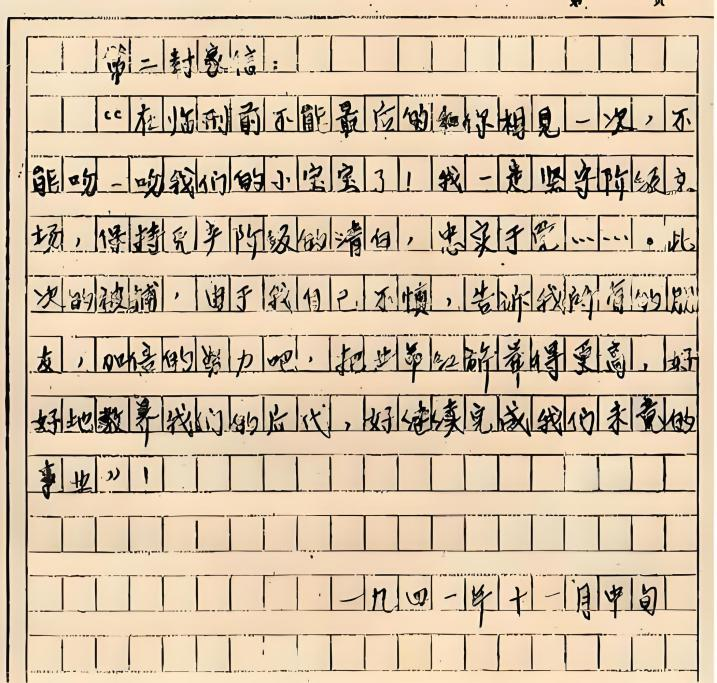 第二封家信：
“在临刑前不能最后的和你相见一次，不
能吻一吻我们的小宝宝了！我一定坚守阶级立
场，保持无产阶级的清白，忠实于党……。此
次的被捕，由于我自己不慎，告诉我所有的朋
友，加倍的努力吧，把革命红旗举得更高，好
好地教养我们的后代，好继续完成我们未竟的
事业”！
一九四一年十一月中旬